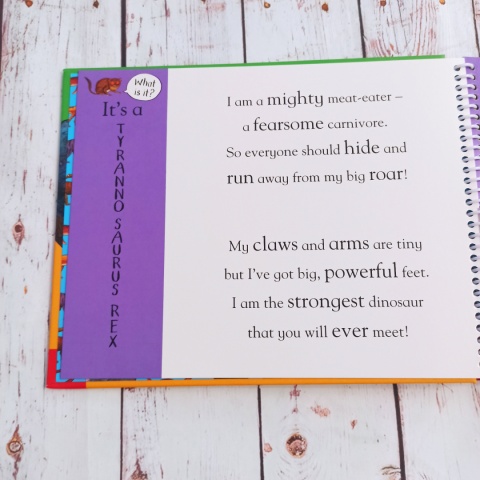 What
is it?
It's a
TYRANNOSAURUS REX
I am a mighty meat-eater –
a fearsome carnivore.
So everyone should hide and
run away from my big roar!
My claws and arms are tiny
but I've got big, powerful feet.
I am the strongest dinosaur
that you will ever meet!